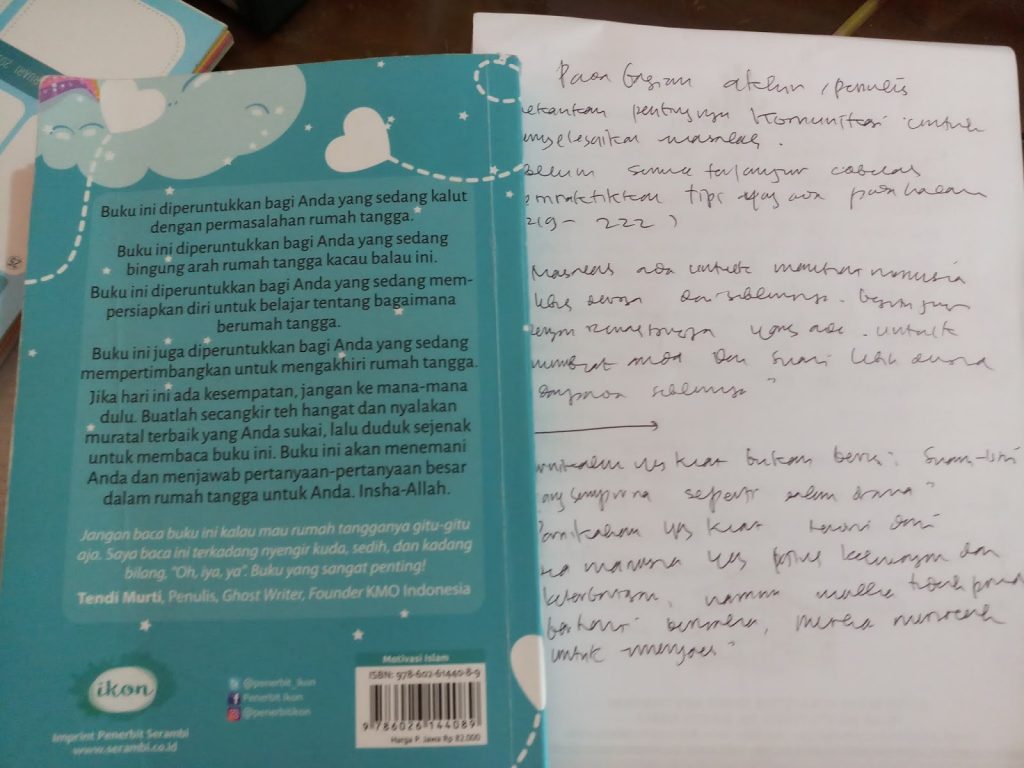 Buku ini diperuntukkan bagi Anda yang sedang kalut
dengan permasalahan rumah tangga.
Buku ini diperuntukkan bagi Anda yang sedang
bingung arah rumah tangga kacau balau ini.
Buku ini diperuntukkan bagi Anda yang sedang mem-
persiapkan diri untuk belajar tentang bagaimana
berumah tangga.
Buku ini juga diperuntukkan bagi Anda yang sedang
mempertimbangkan untuk mengakhiri rumah tangga.
Jika hari ini ada kesempatan, jangan ke mana-mana
dulu. Buatlah secangkir teh hangat dan nyalakan
muratal terbaik yang Anda sukai, lalu duduk sejenak
untuk membaca buku ini. Buku ini akan menemani
Anda dan menjawab pertanyaan-pertanyaan besar
dalam rumah tangga untuk Anda. Insha-Allah.
Jangan baca buku ini kalau mau rumah tangganya gitu-gitu
aja. Saya baca ini terkadang nyengir kuda, sedih, dan kadang
bilang, "Oh, iya, ya". Buku yang sangat penting!
Tendi Murti, Penulis, Ghost Writer, Founder KMO Indonesia
ikon
@penerbit_ikon
Penerbit Ikon
@penerbitikon
Imprint Penerbit Serambi
www.serambi.co.id
Motivasi Islam
ISBN: 978-602-61440-8-9
9 786026 144089
Harga P. Jawa Rp 82.000
Pada bagian akhir, penulis
pentingnya komunikasi untuk
masalah.
semua terlanjur
tips yg ada pada halaman
219 - 222)
Masalah ada untuk manusia
dewasa dari sebelumnya.
yang ada. untuk
dan suami lebih dewasa
daripada sebelumnya"
yg kuat bukan berisi suami-istri
yang sempurna seperti dalam drama"
Pernikahan yg kuat dari
manusia yg dan
namun
mereka
untuk